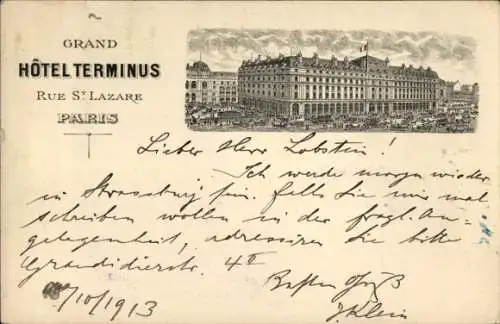 GRAND
HÔTEL TERMINUS
RUE ST LAZARE
PARIS
Lieber Herr Lobstein!
Ich werde morgen wieder
in Strassburg sein. Falls Sie mir mal
schreiben wollen in der fragl. An-
gelegenheit, adressiren Sie bitte
Grandidierstr. 4 II
Besten Gruß
J Klein
/10/1913